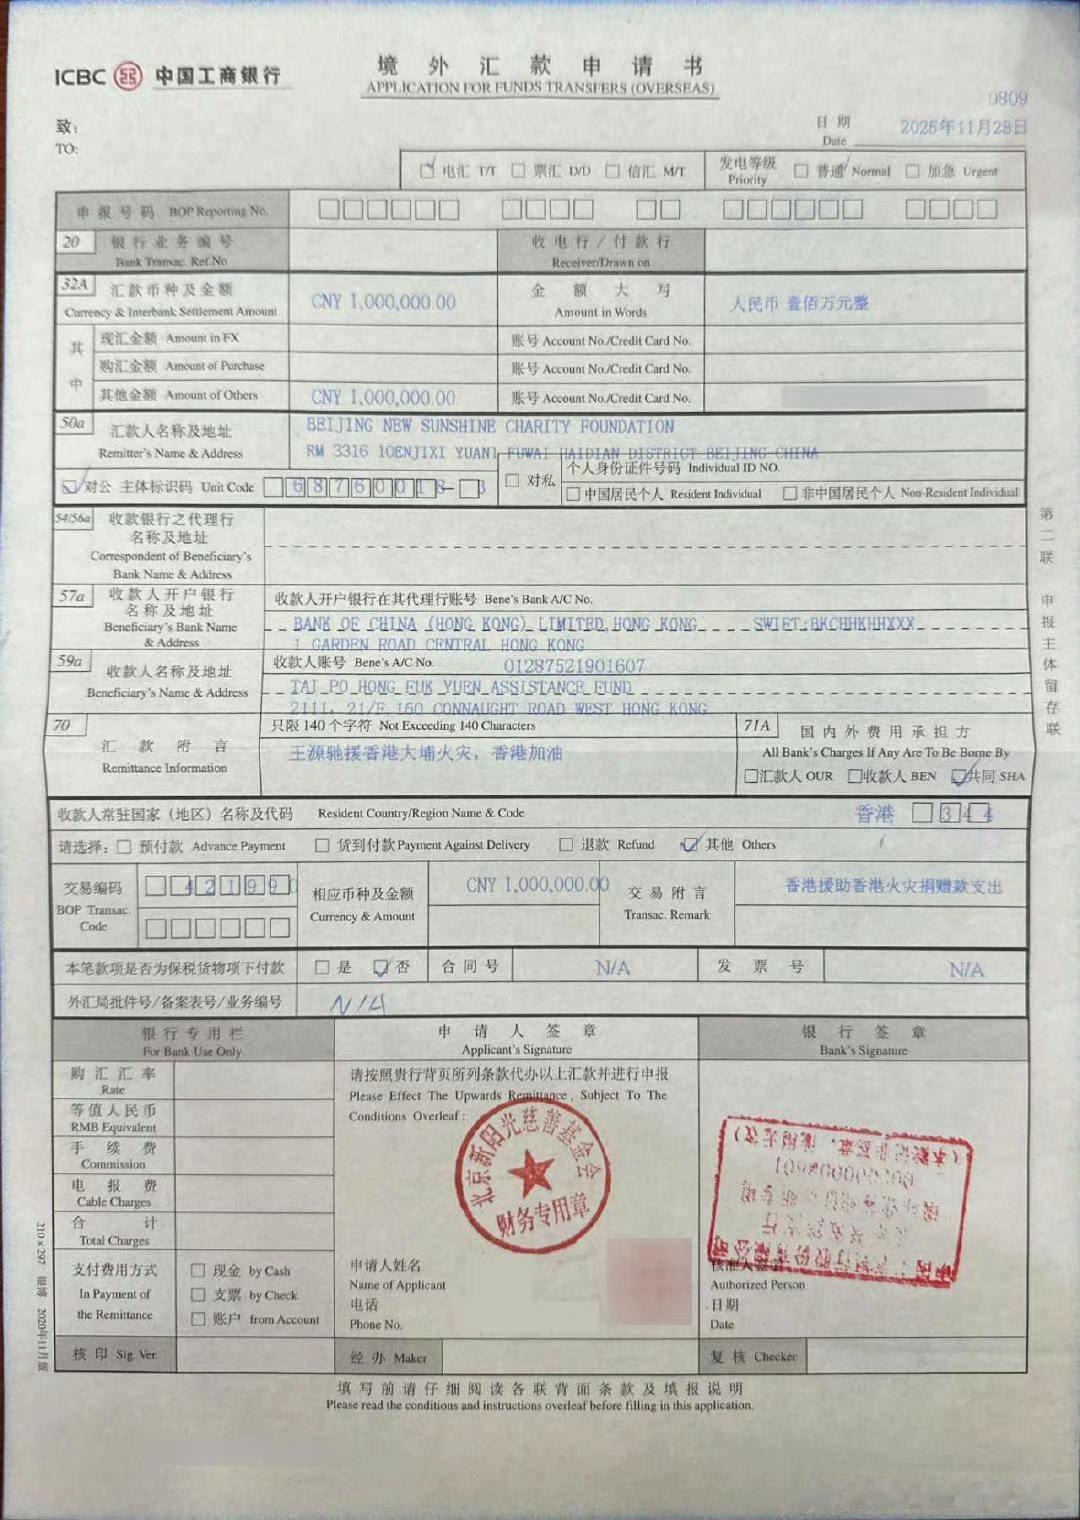 ICBC 中国工商银行
境外汇款申请书
APPLICATION FOR FUNDS TRANSFERS (OVERSEAS)
0809
致:
TO:
日期 2025年11月28日
Date
电汇 T/T 票汇 D/D 信汇 M/T 发电等级 Priority 普通 Normal 加急 Urgent
申报号码 BOP Reporting No.
20 银行业务编号 收电行/付款行
Bank Transac. Ref.No Receiver/Drawn on
32A 汇款币种及金额 CNY 1,000,000.00 金额大写 人民币 壹佰万元整
Currency & Interbank Settlement Amount Amount in Words
其中
现汇金额 Amount in FX 账号 Account No./Credit Card No.
购汇金额 Amount of Purchase 账号 Account No./Credit Card No.
其他金额 Amount of Others CNY 1,000,000.00 账号 Account No./Credit Card No.
50a 汇款人名称及地址 BEIJING NEW SUNSHINE CHARITY FOUNDATION
Remitter's Name & Address RM 3316 10ENJIXI YUAN1 FUWAI HAIDIAN DISTRICT BEIJING CHINA
对公 主体标识码 Unit Code 68760018-3 对私 个人身份证件号码 Individual ID NO.
中国居民个人 Resident Individual 非中国居民个人 Non-Resident Individual
54/56a 收款银行之代理行
名称及地址
Correspondent of Beneficiary's
Bank Name & Address
57a 收款人开户银行 收款人开户银行在其代理行账号 Bene's Bank A/C No.
名称及地址
Beneficiary's Bank Name BANK OF CHINA (HONG KONG) LIMITED,HONG KONG SWIFT:BKCHHKHHXXX
& Address 1 GARDEN ROAD CENTRAL HONG KONG
59a 收款人名称及地址 收款人账号 Bene's A/C No. 01287521901607
Beneficiary's Name & Address TAI PO HONG FUK YUEN ASSISTANCE FUND
2111, 21/F,160 CONNAUGHT ROAD WEST HONG KONG
70 汇款附言 只限 140 个字符 Not Exceeding 140 Characters 71A 国内外费用承担方
Remittance Information 王源驰援香港大埔火灾，香港加油 All Bank's Charges If Any Are To Be Borne By
汇款人 OUR 收款人 BEN 共同 SHA
收款人常驻国家（地区）名称及代码 Resident Country/Region Name & Code 香港 344
请选择: 预付款 Advance Payment 货到付款 Payment Against Delivery 退款 Refund 其他 Others
交易编码 421990 相应币种及金额 CNY 1,000,000.00 交易附言 香港援助香港火灾捐赠款支出
BOP Transac. Code Currency & Amount Transac. Remark
本笔款项是否为保税货物项下付款 是 否 合同号 N/A 发票号 N/A
外汇局批件号/备案表号/业务编号 N/A
银行专用栏 申请人签章 银行签章
For Bank Use Only Applicant's Signature Bank's Signature
购汇汇率 请按照贵行背页所列条款代办以上汇款并进行申报
Rate Please Effect The Upwards Remittance, Subject To The
Conditions Overleaf:
等值人民币
RMB Equivalent
手续费
Commission
电报费
Cable Charges
合计
Total Charges
北京新阳光慈善基金会
财务专用章
支付费用方式 现金 by Cash 申请人姓名
In Payment of 支票 by Check Name of Applicant Authorized Person
the Remittance 账户 from Account 电话 日期
Phone No. Date
核印 Sig. Ver. 经办 Maker 复核 Checker
填写前请仔细阅读各联背面条款及填报说明
Please read the conditions and instructions overleaf before filling in this application.
第二联 申报主体留存联
210×297 2020年11月版